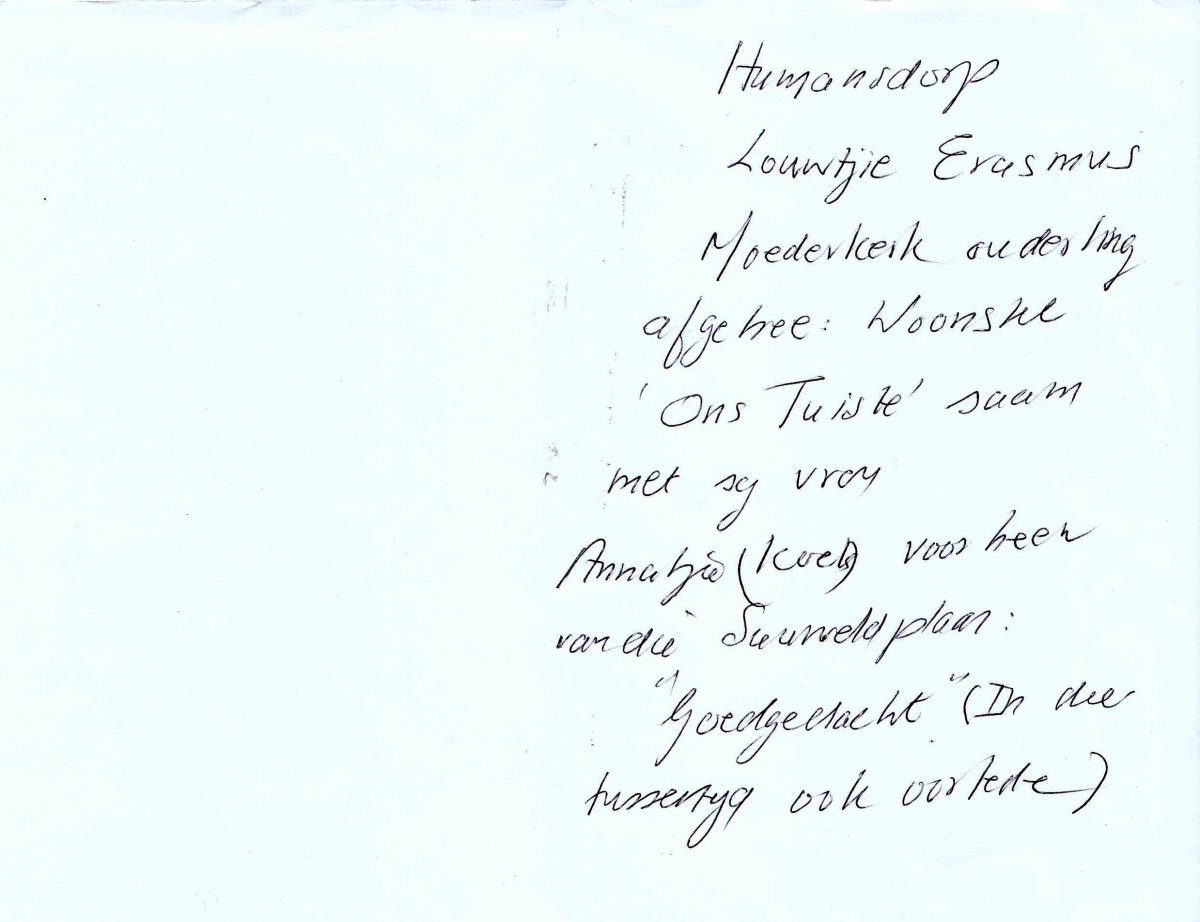 Humansdorp
Louwtjie Erasmus
Moederkerk ouderling
afgetree: Woonstel
'Ons Tuiste' saam
met sy vrou
Annatjie voorheen
van die Suurveld plaas:
"Goedgedacht" (In die
tussentyd ook oorlede)